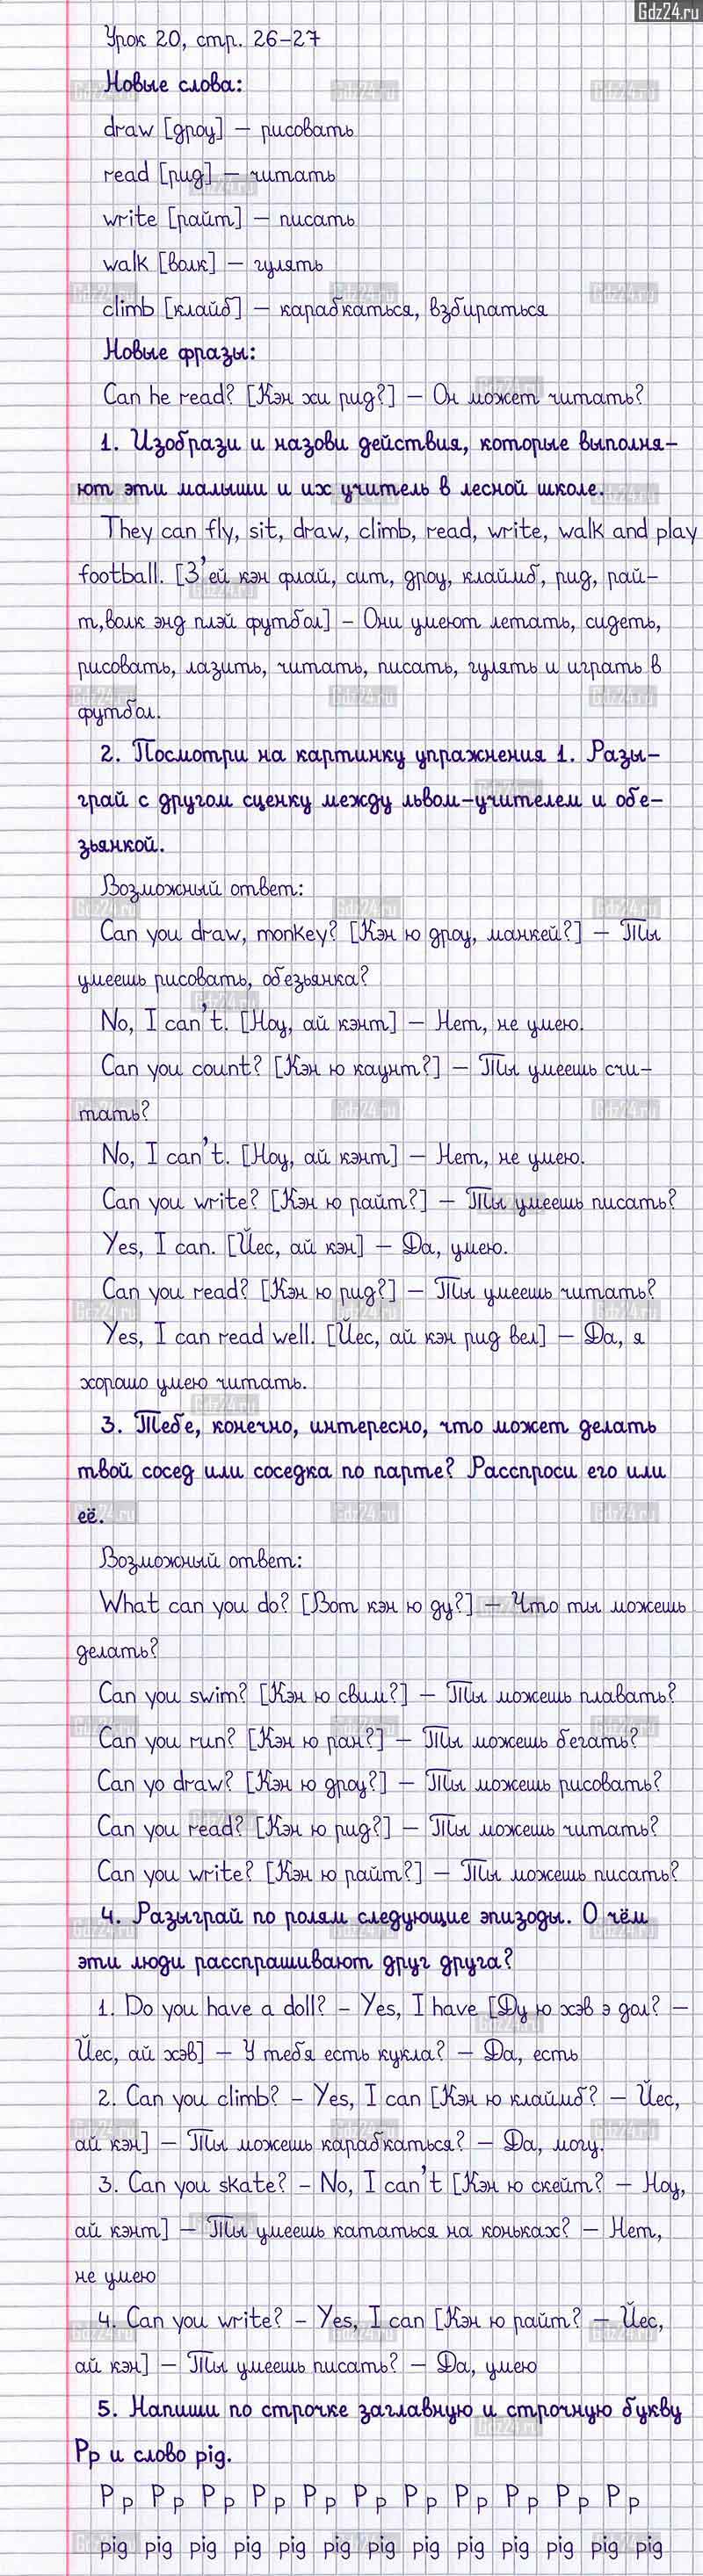 Gdz24.ru
Урок 20, стр. 26-27
Новые слова:
draw [дроу] – рисовать
read [рид] – читать
write [райт] – писать
walk [волк] – гулять
climb [клайб] – карабкаться, взбираться
Новые фразы:
Can he read? [Кэн хи рид?] – Он может читать?
1. Изобрази и назови действия, которые выполня-
ют эти малыши и их учитель в лесной школе.
They can fly, sit, draw, climb, read, write, walk and play
football. [З'ей кэн флай, сит, дроу, клаймб, рид, рай-
т,волк энд плэй футбол] – Они умеют летать, сидеть,
рисовать, лазить, читать, писать, гулять и играть в
футбол.
2. Посмотри на картинку упражнения 1. Разы-
грай с другом сценку между львом-учителем и обе-
зьянкой.
Возможный ответ:
Can you draw, monkey? [Кэн ю дроу, манкей?] – Ты
умеешь рисовать, обезьянка?
No, I can't. [Ноу, ай кэнт] – Нет, не умею.
Can you count? [Кэн ю каунт?] – Ты умеешь счи-
тать?
No, I can't. [Ноу, ай кэнт] – Нет, не умею.
Can you write? [Кэн ю райт?] – Ты умеешь писать?
Yes, I can. [Йес, ай кэн] – Да, умею.
Can you read? [Кэн ю рид?] – Ты умеешь читать?
Yes, I can read well. [Йес, ай кэн рид вел] – Да, я
хорошо умею читать.
3. Тебе, конечно, интересно, что может делать
твой сосед или соседка по парте? Расспроси его или
её.
Возможный ответ:
What can you do? [Вот кэн ю ду?] – Что ты можешь
делать?
Can you swim? [Кэн ю свим?] – Ты можешь плавать?
Can you run? [Кэн ю ран?] – Ты можешь бегать?
Can yo draw? [Кэн ю дроу?] – Ты можешь рисовать?
Can you read? [Кэн ю рид?] – Ты можешь читать?
Can you write? [Кэн ю райт?] – Ты можешь писать?
4. Разыграй по ролям следующие эпизоды. О чём
эти люди расспрашивают друг друга?
1. Do you have a doll? – Yes, I have [Ду ю хэв э дол? –
Йес, ай хэв] – У тебя есть кукла? – Да, есть
2. Can you climb? – Yes, I can [Кэн ю клаймб? – Йес,
ай кэн] – Ты можешь карабкаться? – Да, могу.
3. Can you skate? – No, I can't [Кэн ю скейт? – Ноу,
ай кэнт] – Ты умеешь кататься на коньках? – Нет,
не умею
4. Can you write? – Yes, I can [Кэн ю райт? – Йес,
ай кэн] – Ты умеешь писать? – Да, умею
5. Напиши по строчке заглавную и строчную букву
Pp и слово pig.
Pp Pp Pp Pp Pp Pp Pp Pp Pp Pp Pp
pig pig pig pig pig pig pig pig pig pig pig pig pig